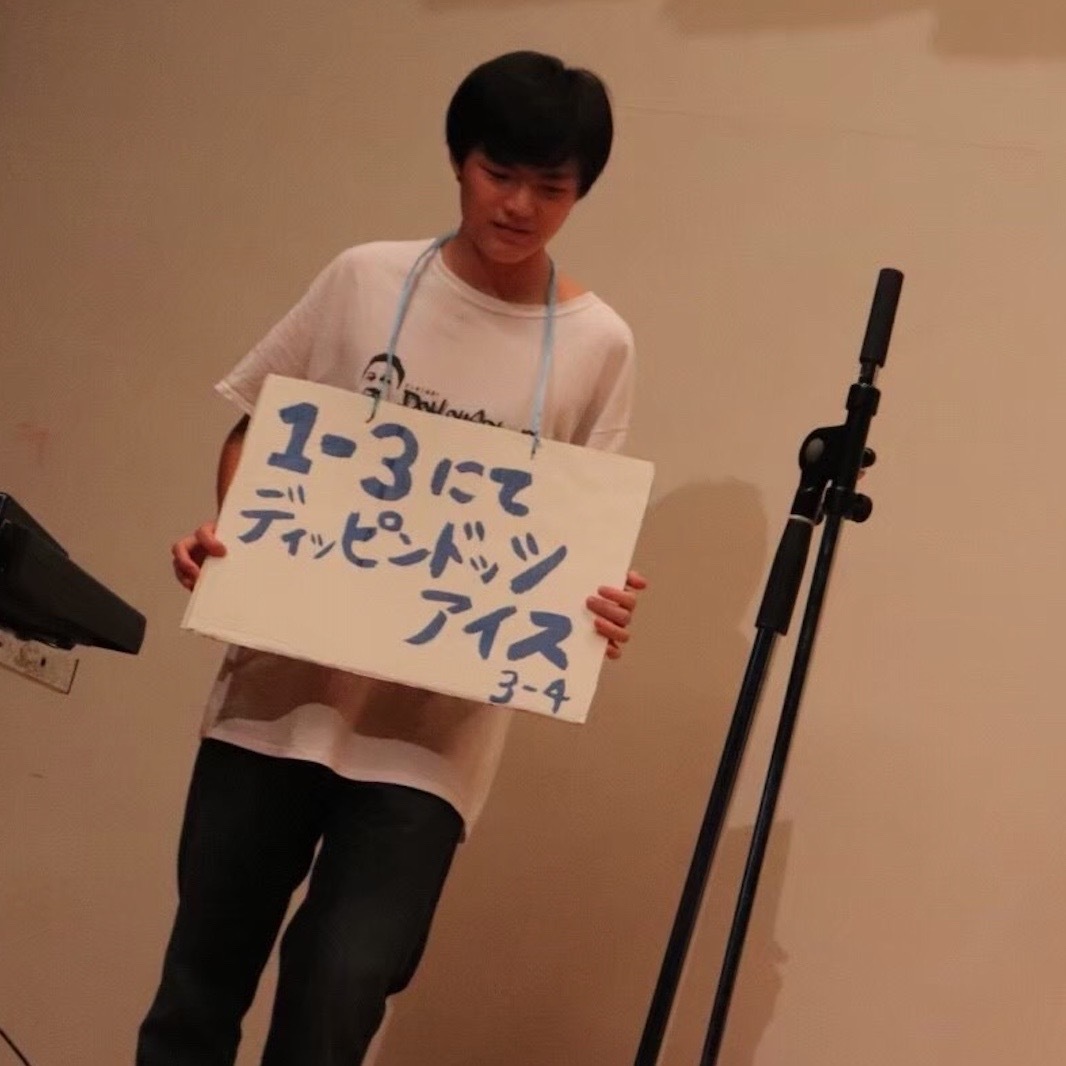 1-3にて
ディッピンドッツ
アイス
3-4